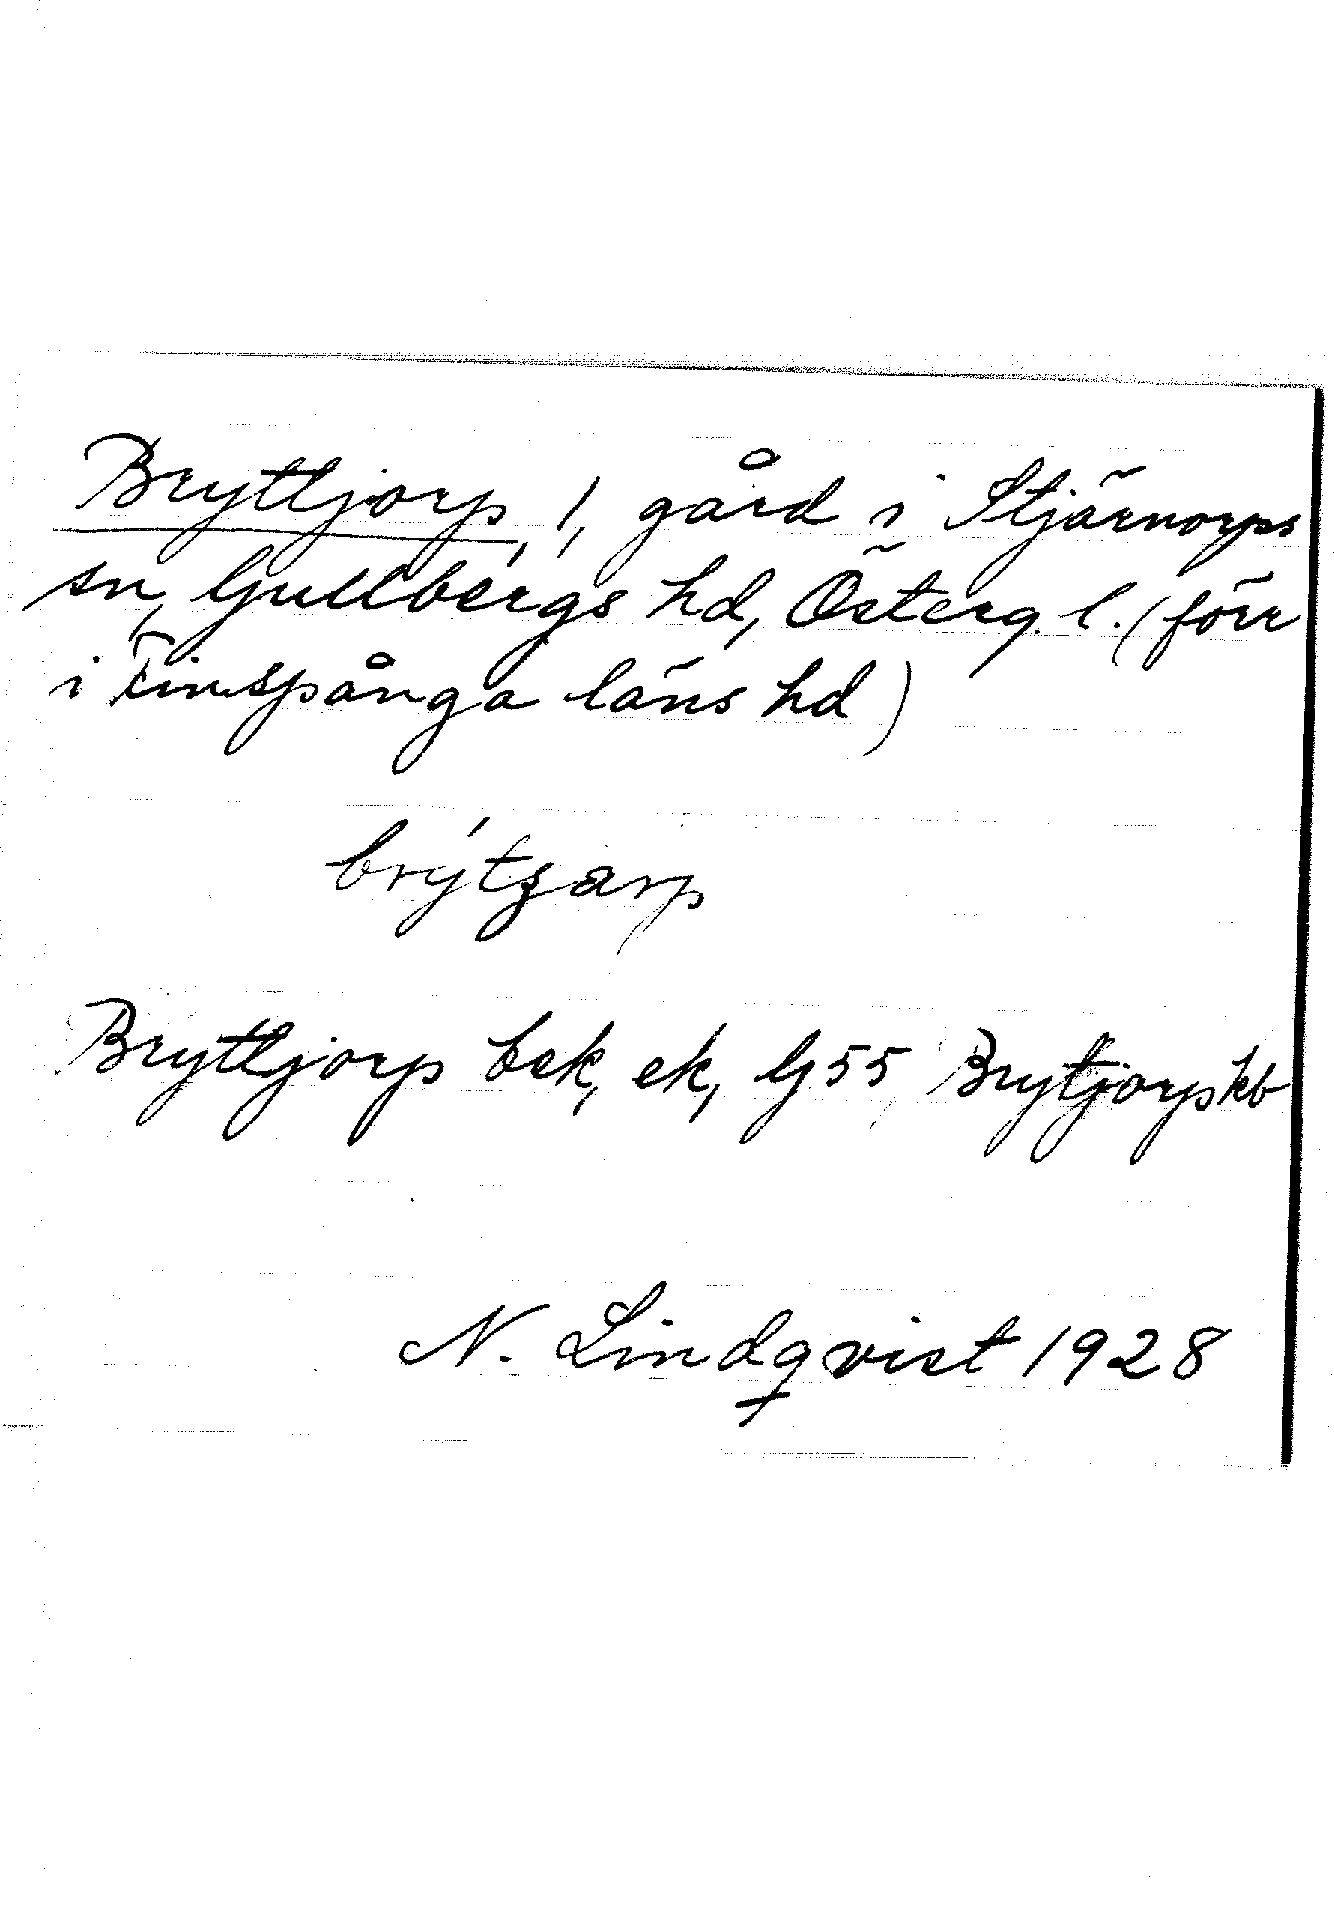 Bryttjorp, 1, gård i Stjärnorps
sn, Gullbergs hd, Österg. l. (förr
i Finspånga läns hd)
brýtȷarp
Bryttjorp bek, ek, G55 Brytjorp kb
N. Lindqvist 1928